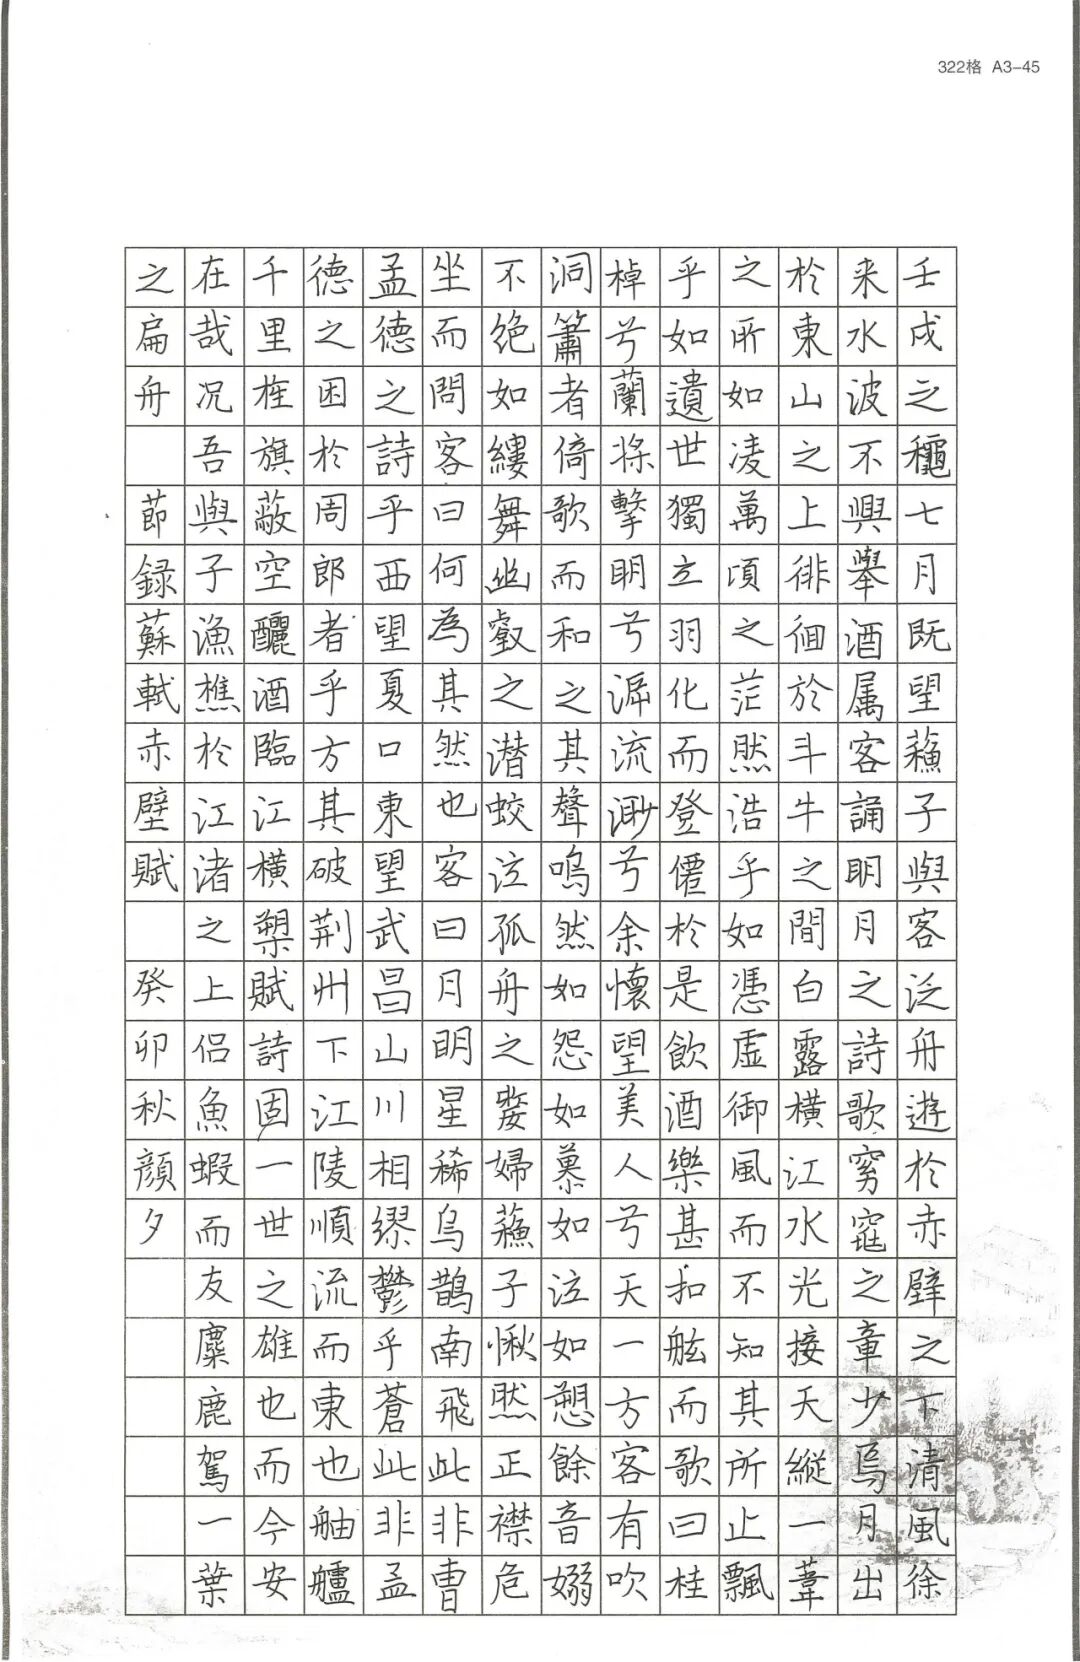 322格 A3-45
壬戌之龝七月既望蘓子與客泛舟遊於赤壁之下清風徐
来水波不興舉酒属客誦明月之詩歌窈窕之章少焉月出
於東山之上徘徊於斗牛之間白露橫江水光接天縱一葦
之所如凌萬頃之茫然浩乎如憑虛御風而不知其所止飄
乎如遺世獨立羽化而登僊於是飲酒樂甚扣舷而歌曰桂
棹兮蘭槳擊明兮泝流渺兮余懷望美人兮天一方客有吹
洞簫者倚歌而和之其聲鳴然如怨如慕如泣如愬餘音嫋
不絕如縷舞幽壑之潜蛟泣孤舟之嫠婦蘓子愀然正襟危
坐而問客曰何為其然也客曰月明星稀烏鵲南飛此非曹
孟德之詩乎西望夏口東望武昌山川相繆鬱乎蒼此非孟
德之困於周郎者乎方其破荆州下江陵順流而東也舳艫
千里旌旗蔽空釃酒臨江橫槊賦詩固一世之雄也而今安
在哉况吾與子漁樵於江渚之上侶魚蝦而友麋鹿駕一葉
之扁舟 節録蘇軾赤壁賦 癸卯秋顔夕